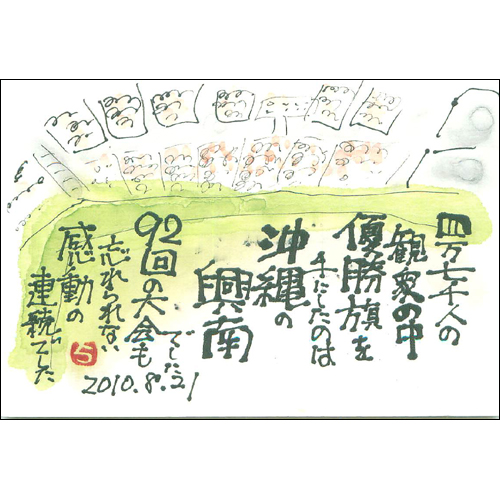 四万七千人の
観衆の中
優勝旗を
手にしたのは
沖縄の
興南
でした
92回の大会も
忘れられない
感動の
連続でした
2010.8.21
ら